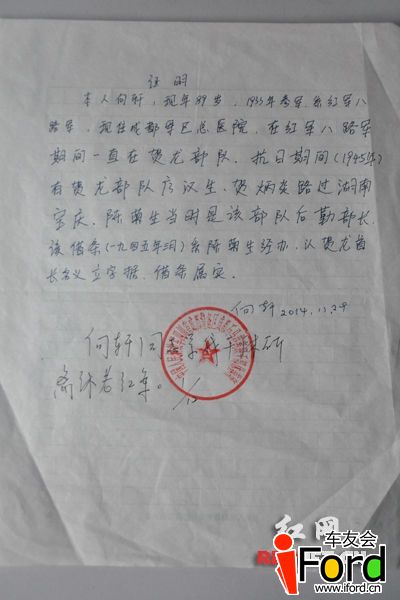 证明
本人向轩，现年89岁，1933年参军，系红军八
路军，现住成都军区总医院，在红军八路军
期间一直在贺龙部队。抗日期间（1945年）
有贺龙部队廖汉生、贺炳炎路过湖南
宝庆。陈菊生当时是该部队后勤部长，
该借条（一九四五年三月）系陈菊生经办，以贺龙首
长名义立字据，借条属实。
向轩 2014.11.29
向轩同
离休老红军。
红网
车友会
iFord
www.iford.cn